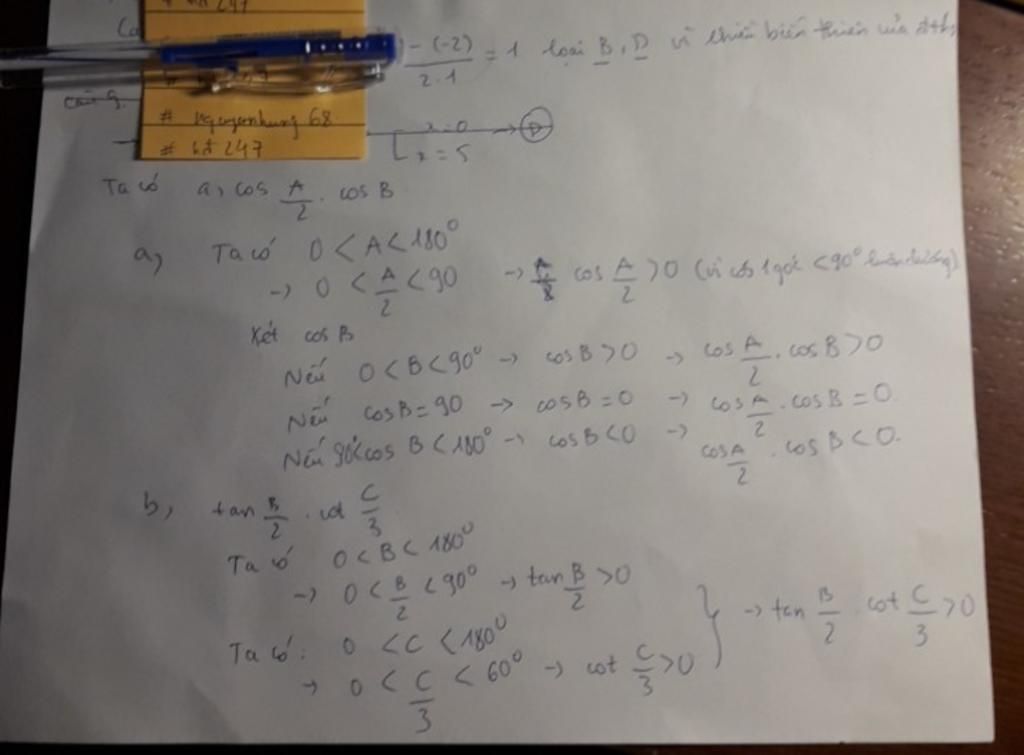 # ht 247
-(-2)/2.1 = 1 loại B, D vì chiều biến thiên của đths
câu 9.
# nguyenhung 68
# ht 247
x=0 → D
x=5
Ta có a, cos A/2 . cos B
a, Ta có 0 < A < 180°
→ 0 < A/2 < 90 → cos A/2 > 0 (vì cos 1 góc < 90° luôn dương)
Xét cos B
Nếu 0 < B < 90° → cos B > 0 → cos A/2 . cos B > 0
Nếu cos B = 90 → cos B = 0 → cos A/2 . cos B = 0.
Nếu 90° < cos B < 180° → cos B < 0 → cos A/2 . cos B < 0.
b, tan B/2 . cot C/3
Ta có 0 < B < 180°
→ 0 < B/2 < 90° → tan B/2 > 0
Ta có: 0 < C < 180°
→ 0 < C/3 < 60° → cot C/3 > 0
} → tan B/2 . cot C/3 > 0